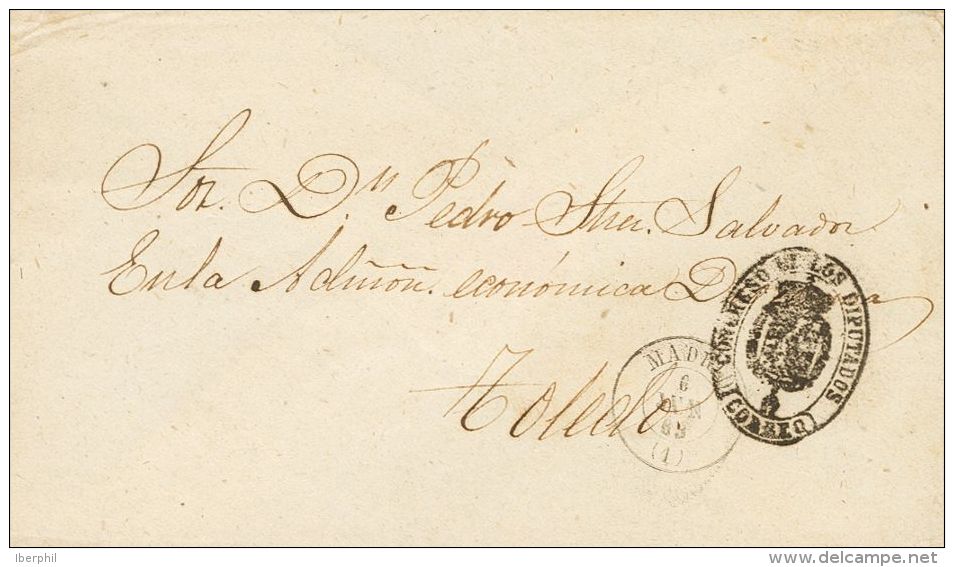 Sor. Dn Pedro Salvador.
En la Admon. económica D
Toledo
CONGRESO DE LOS DIPUTADOS
CORREO
MADR
6
JUN
(1)
Iberphil
www.delcampe.net